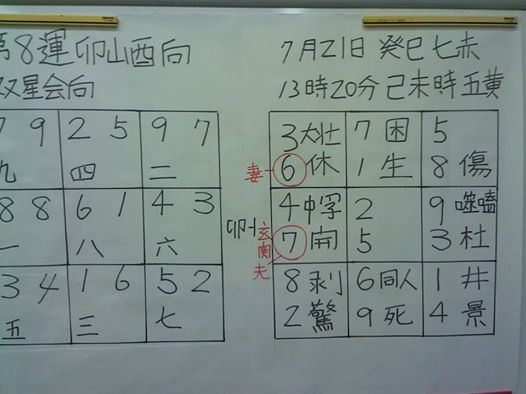 第8運卯山酉向
双星会向
7 9 2 5 9 7
九 四 二
8 8 6 1 4 3
一 八 六
3 4 1 6 5 2
五 三 七
7月21日 癸巳七赤
13時20分己未時五黄
3大壮 7困 5
妻 6休 1生 8傷
卯 4中孚 2 9噬嗑
玄関
夫 7開 5 3杜
8剥 6同人 1井
2驚 9死 4景